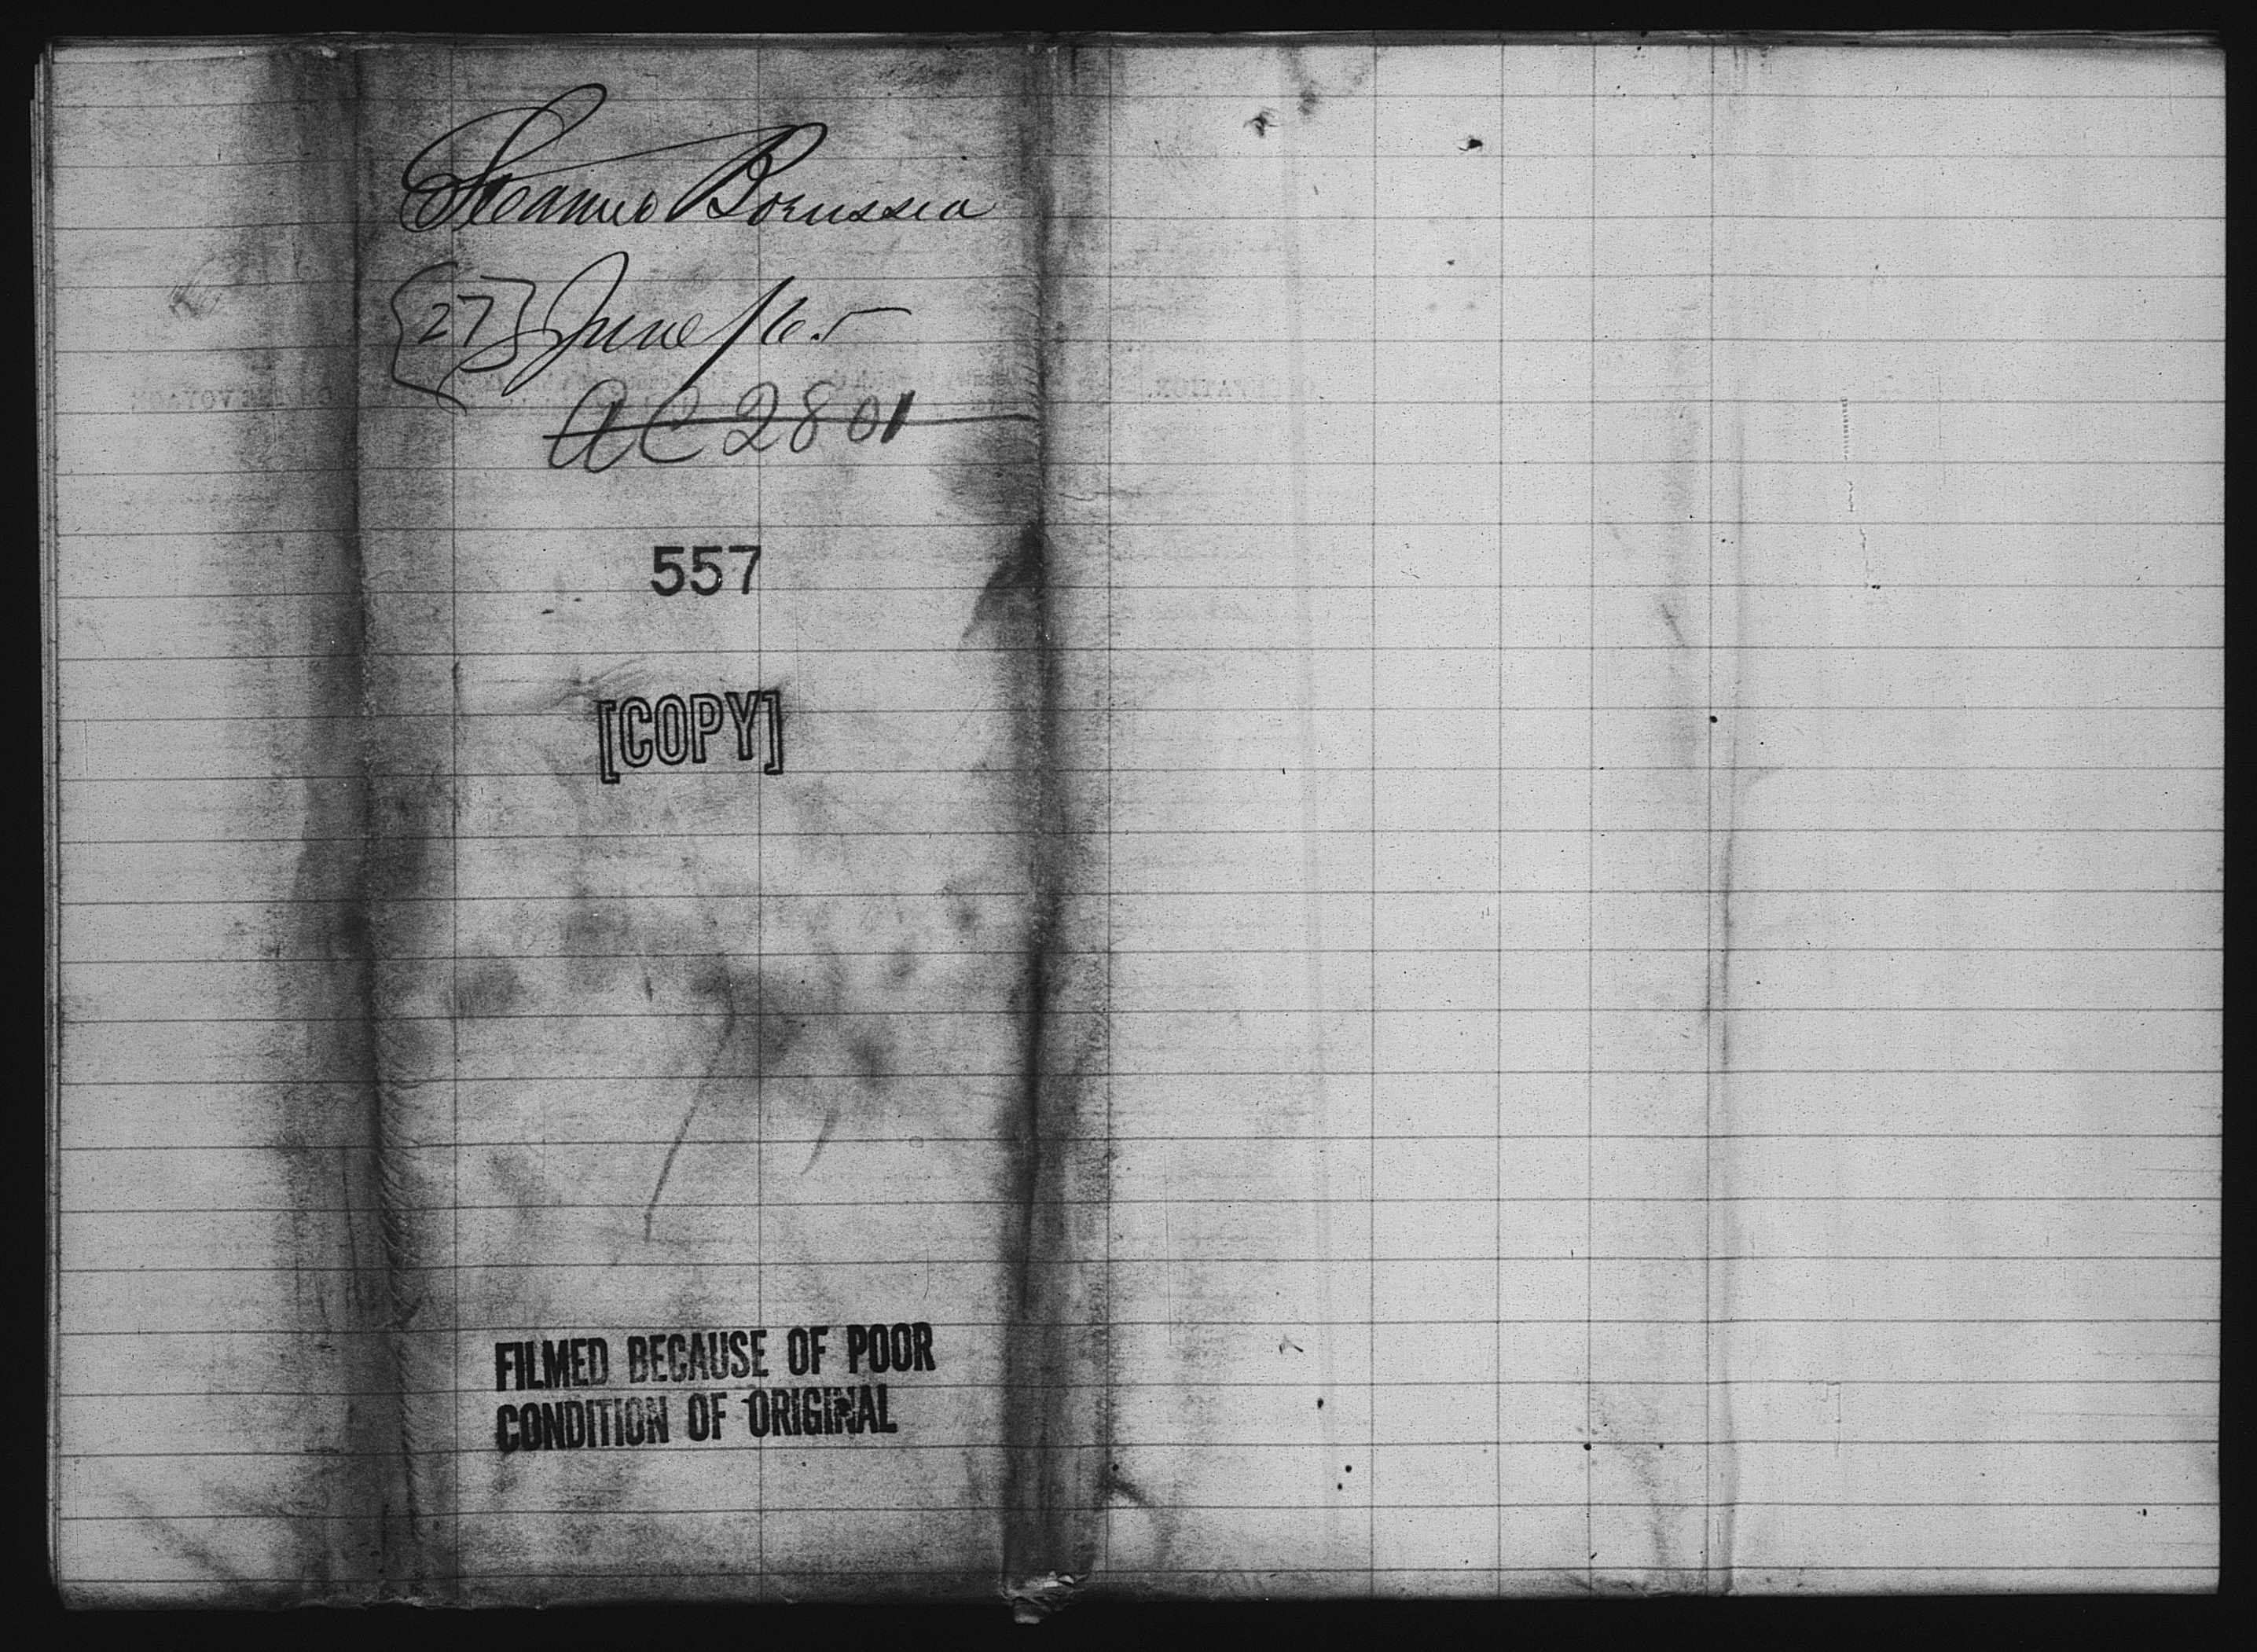 Steamer Borussia
{27} June /65
AC 2801
557
[COPY]
FILMED BECAUSE OF POOR
CONDITION OF ORIGINAL